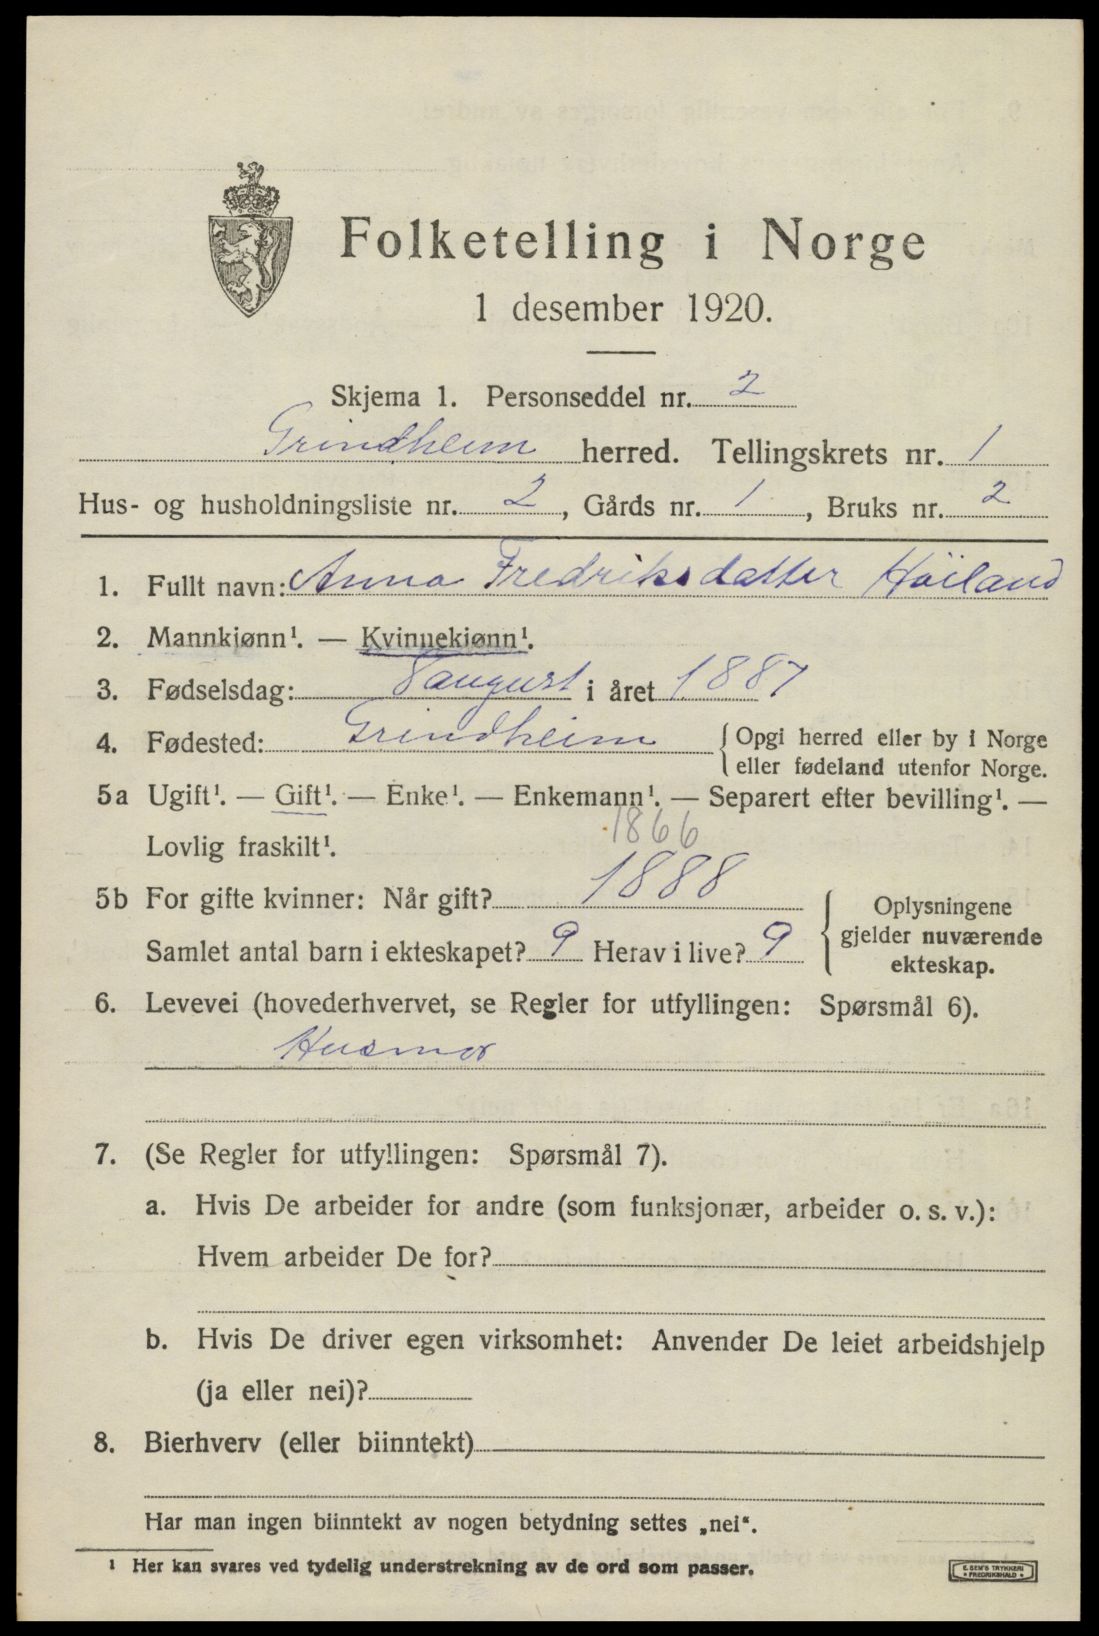 Folketelling i Norge
1 desember 1920.
Skjema 1. Personseddel nr. 2
Grindheim herred. Tellingskrets nr. 1
Hus- og husholdningsliste nr. 2, Gårds nr. 1, Bruks nr. 2
1. Fullt navn: Anna Fredriksdatter Höiland
2. Mannkjønn¹. — Kvinnekjønn¹.
3. Fødselsdag: 8 august i året 1887
4. Fødested: Grindheim { Opgi herred eller by i Norge
eller fødeland utenfor Norge.
5a Ugift¹. — Gift¹. — Enke¹. — Enkemann¹. — Separert efter bevilling¹. —
Lovlig fraskilt¹.
1866
5b For gifte kvinner: Når gift? 1888
Samlet antal barn i ekteskapet? 9 Herav i live? 9
Oplysningene
gjelder nuværende
ekteskap.
6. Levevei (hovederhvervet, se Regler for utfyllingen: Spørsmål 6).
Husmor
7. (Se Regler for utfyllingen: Spørsmål 7).
a. Hvis De arbeider for andre (som funksjonær, arbeider o. s. v.):
Hvem arbeider De for?
b. Hvis De driver egen virksomhet: Anvender De leiet arbeidshjelp
(ja eller nei)?
8. Bierhverv (eller biinntekt)
Har man ingen biinntekt av nogen betydning settes „nei“.
¹ Her kan svares ved tydelig understrekning av de ord som passer.
E. SEM'S TRYKKERI
• FREDRIKSHALD •